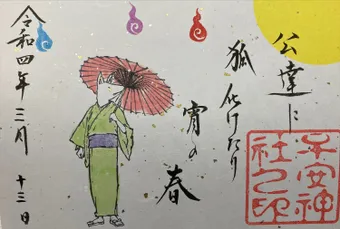 公達に
狐化けたり
宵の春
令和四年三月十三日
子安神
社之印